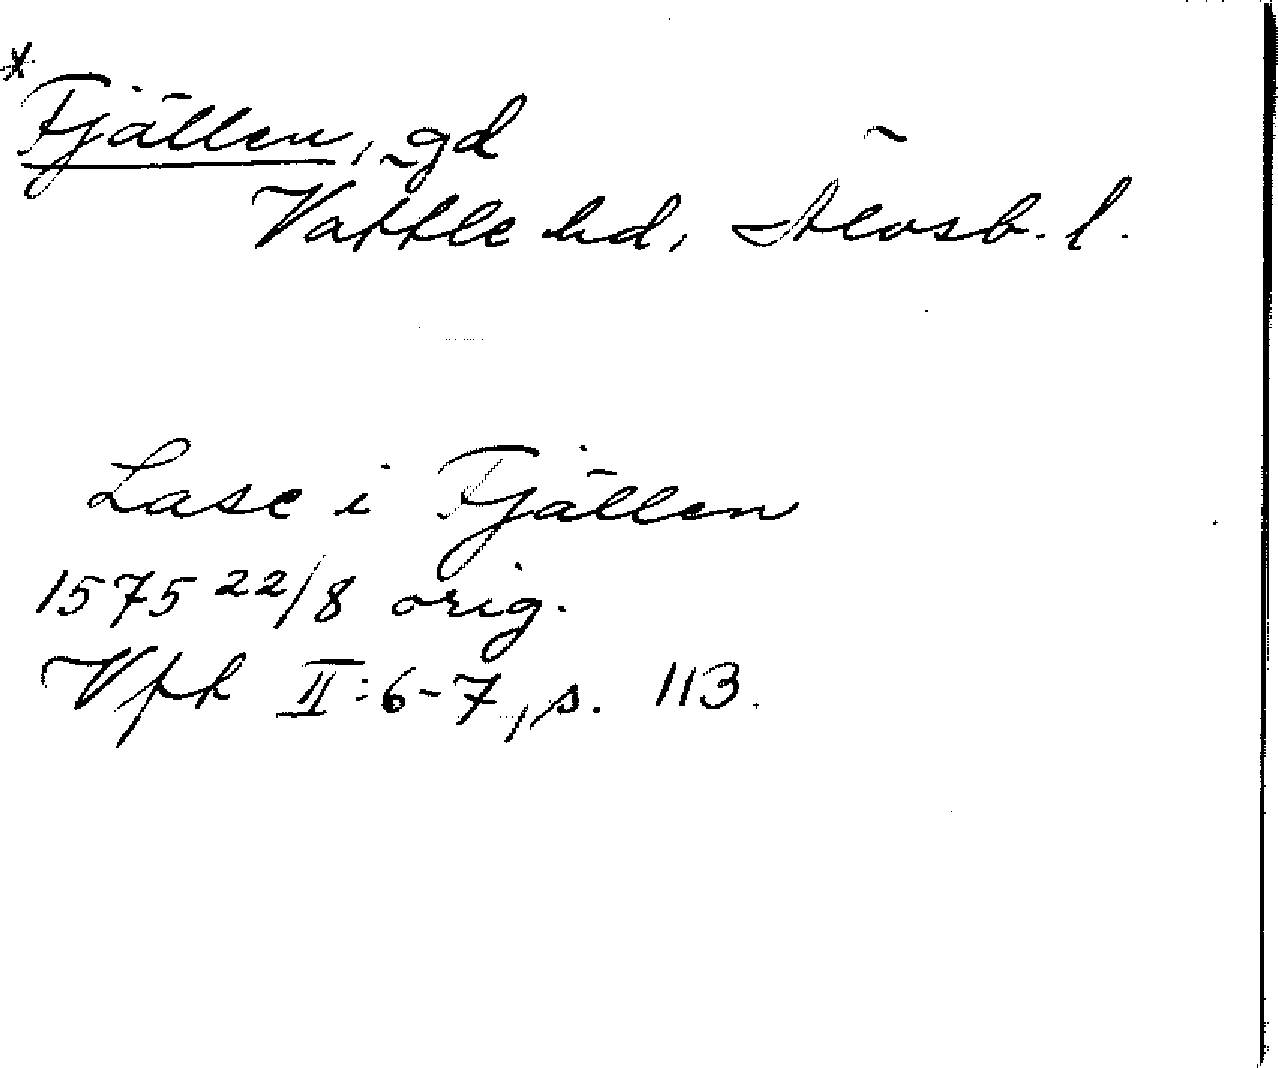 *
Fjällen, gd
Vättle hd, Älvsb. l.
Lasse i Fjällen
1575 22/8 orig.
Vfk II:6-7, s. 113.